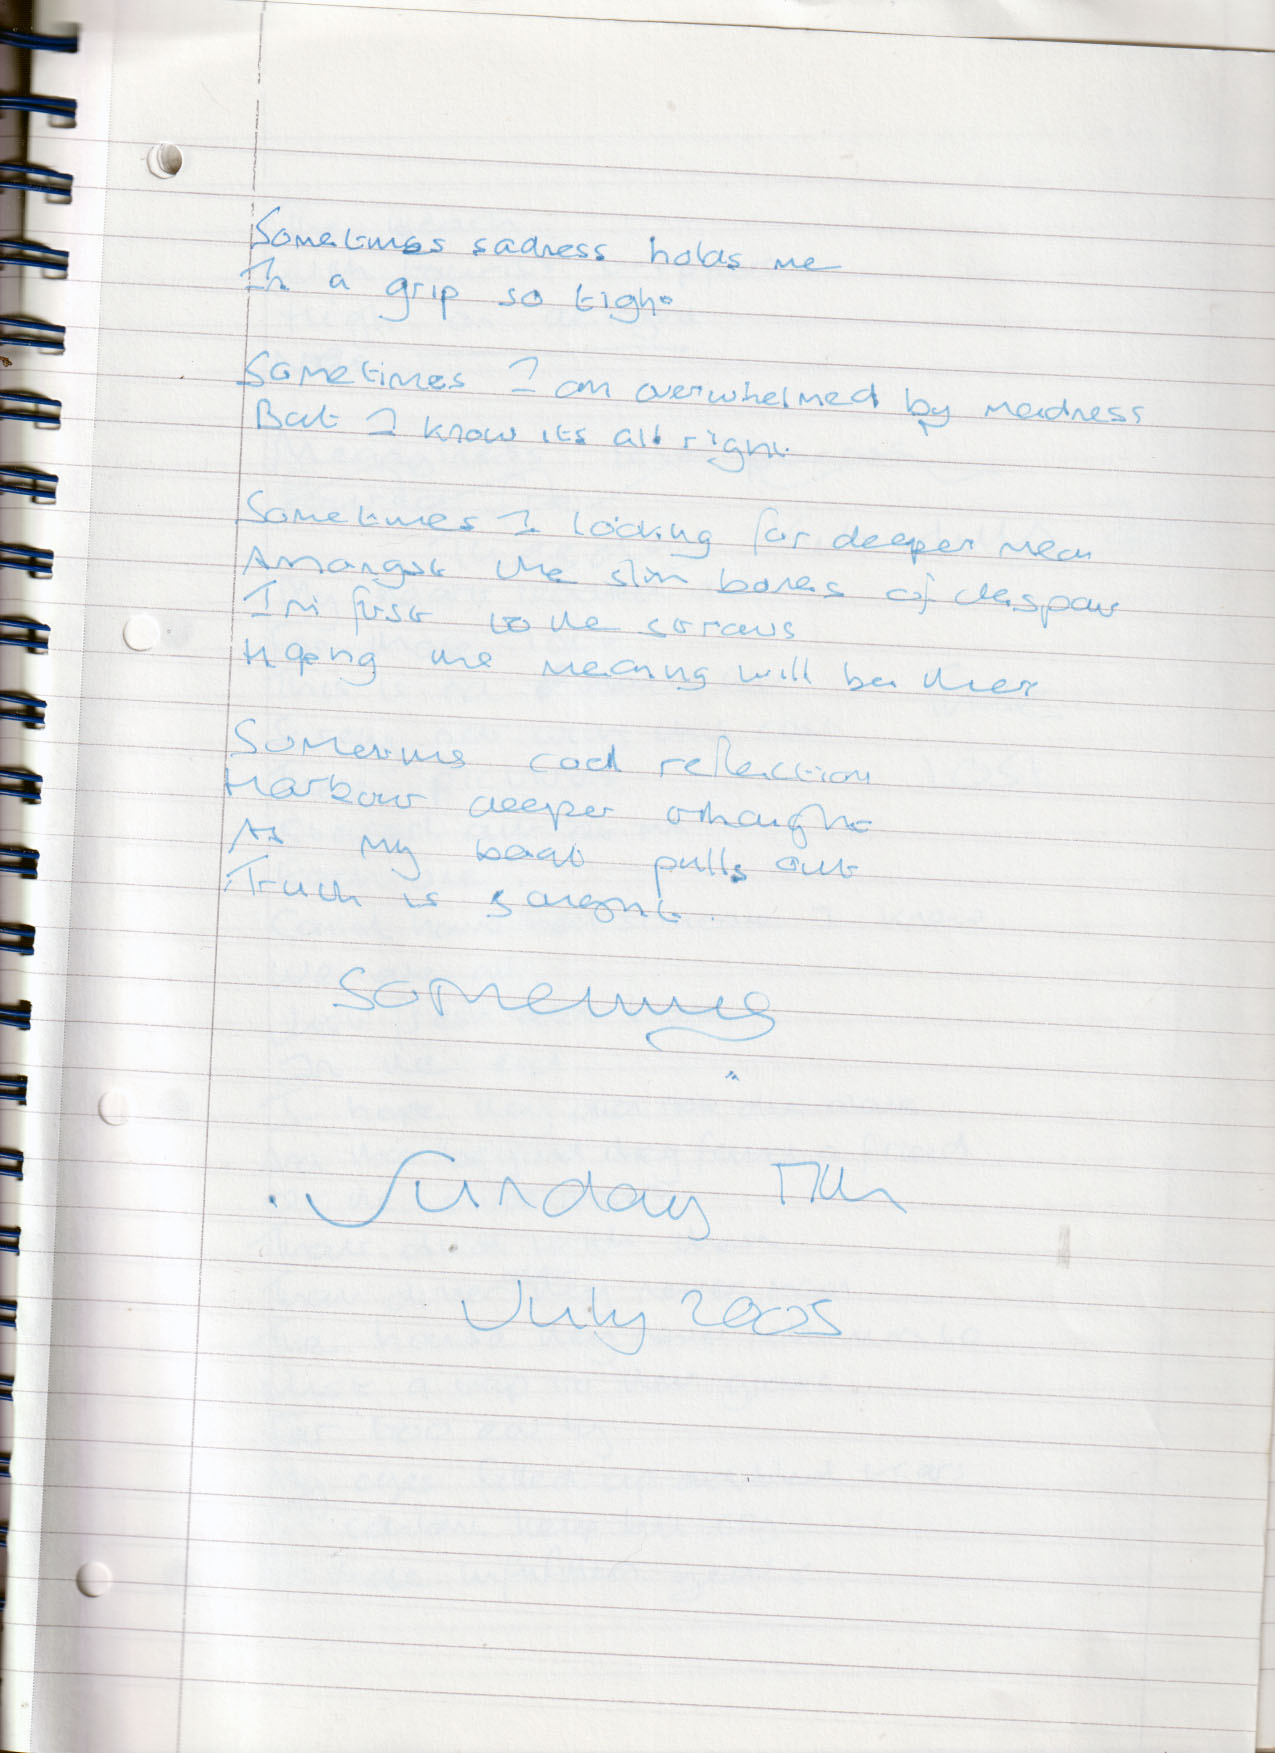 Sometimes sadness holds me
In a grip so tight
Sometimes I am overwhelmed by madness
But I know its all right
Sometimes I looking for deeper mean
Amongst the slim bones of despair
I'm first to the
Hoping the meaning will be there
Sometimes cool reflection
Harbour deeper thought
As my boat pulls out
Truth is sought.
Sometimes
Sunday
July 2005